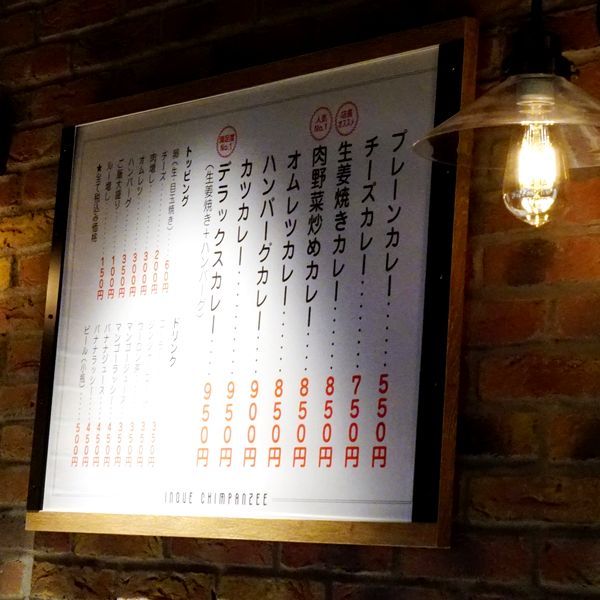 プレーンカレー‥‥‥550円
チーズカレー‥‥‥750円
店長オススメ
生姜焼きカレー‥‥‥850円
人気No.1
肉野菜炒めカレー‥‥‥850円
オムレツカレー‥‥‥850円
ハンバーグカレー‥‥‥900円
カツカレー‥‥‥950円
満足度No.1
デラックスカレー‥‥‥950円
(生姜焼き+ハンバーグ)
トッピング
卵(生・目玉焼き)‥‥60円
チーズ‥‥‥200円
肉増し‥‥‥300円
オムレツ‥‥‥300円
ハンバーグ‥‥‥350円
ご飯大盛り‥‥‥100円
ルー増し‥‥‥150円
★全て税込み価格
ドリンク
350円
350円
350円
マンゴージュース‥350円
マンゴーラッシー‥450円
バナナジュース‥450円
バナナラッシー‥450円
ビール(小瓶)‥‥500円
INOUE CHIMPANZEE